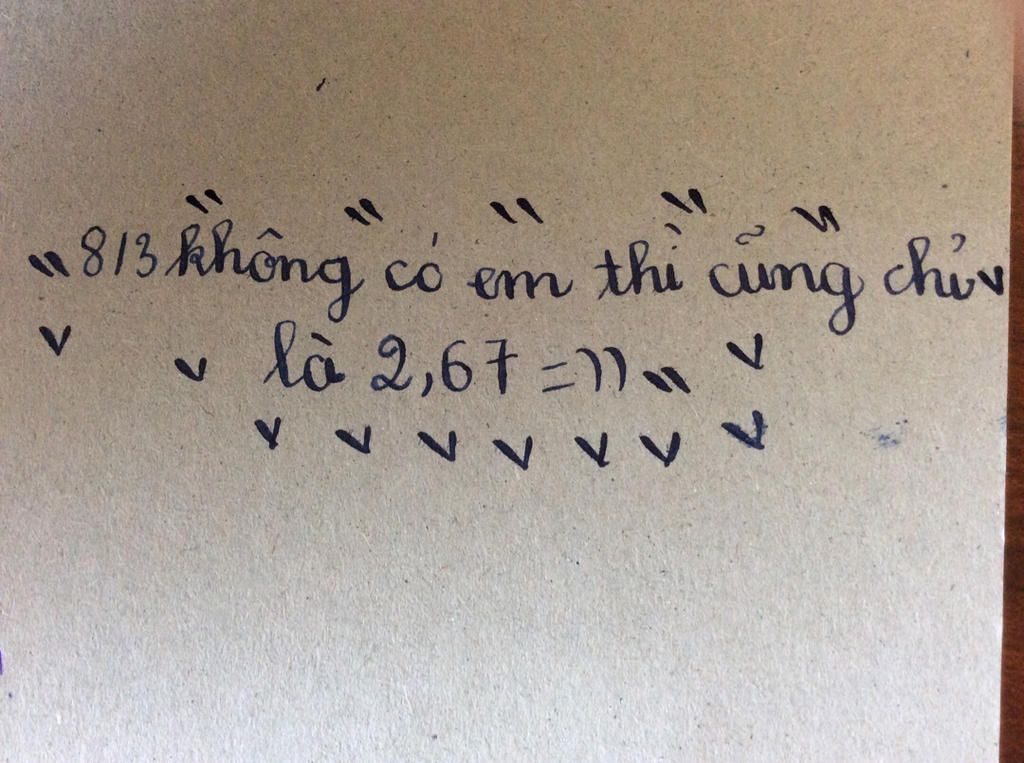 "8/3 không có em thì cũng chỉ
là 2,67 =))"